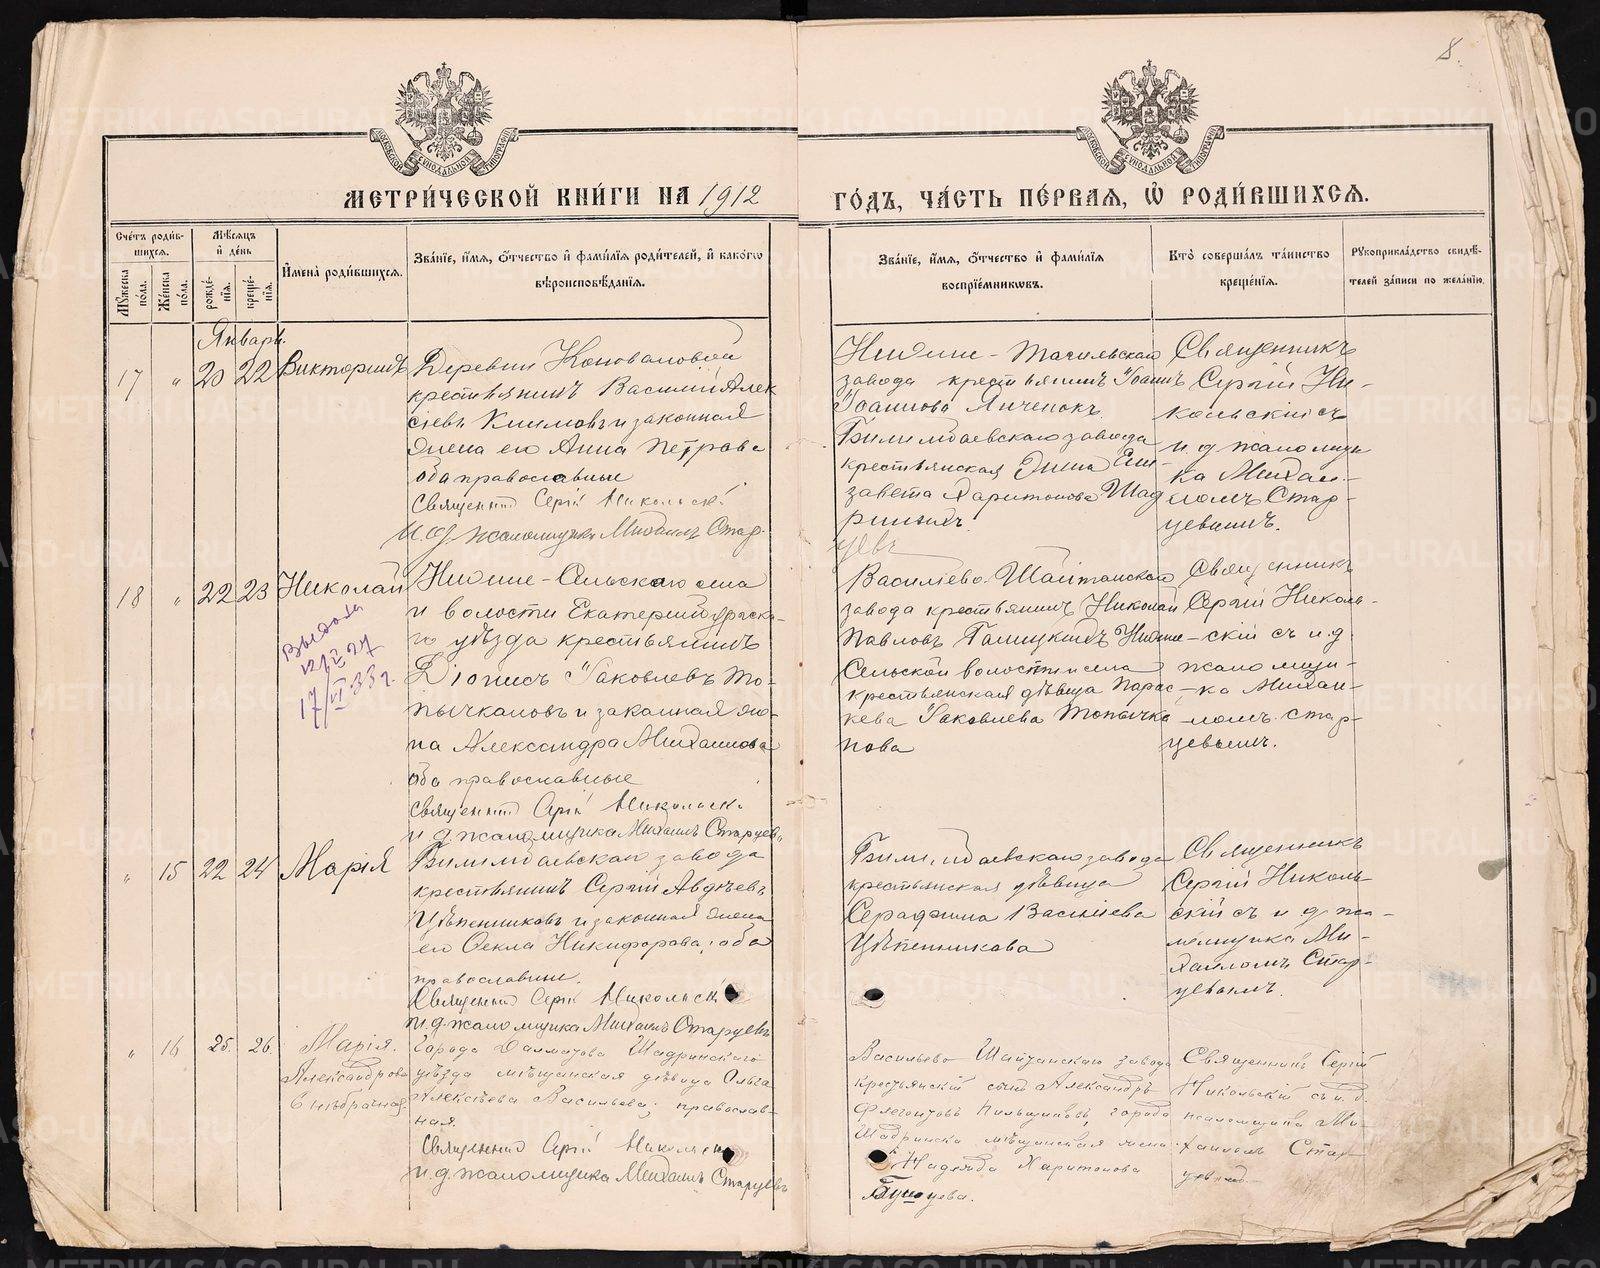 8.
МЕТРИ́ЧЕСКОЙ КНИ́ГИ НА 1912 ГО́ДЪ, ЧА́СТЬ ПЕ́РВАЯ, Ѡ҆ РОДИ́ВШИХСЯ.
Сче́тъ роди́в-
шихся.
Мꙋ́жеска по́ла.
Же́нска по́ла.
Мѣ́сяцъ
и҆ де́нь
рожде́-
нїя.
креще́-
нїя.
И҆мена̀ роди́вшихся.
Зва́нїе, и҆́мя, ѻ҆́тчество и҆ фами́лїя роди́телей, и҆ како́гѡ
вѣроисповѣ́данїя.
Зва́нїе, и҆́мя, ѻ҆́тчество и҆ фами́лїя
воспрїе́мникѡвъ.
Кто̀ соверша́лъ та́инство
креще́нїя.
Рꙋкоприкла́дство свидѣ́-
телей за́писи по жела́нїю.
Январь.
17 " 20 22 Викторинъ
Деревни Коноваловой
крестьянинъ Василій Алек
сіевъ Климовъ и законная
жена его Анна Петрова
оба православные
Священникъ Сергій Никольскій
И. д. псаломщика Михаилъ Стар-
цевъ
Нижне-Тагильскаго
завода крестьянинъ Іоаннъ
Іоанновъ Янченокъ
Билимбаевскаго завода
крестьянская жена Ели-
завета Харитонова Шад
рина
Священникъ
Сергій Ни-
кольскій съ
и д псаломщи
ка Михаи-
ломъ Стар-
цевымъ.
18 " 22 23 Николай
Выдана
17/VI 33 г.
Нижне-Сельскаго села
и волости Екатеринбургска-
го уѣзда крестьянинъ
Діонисъ Іаковлевъ То-
пычкановъ и законная же-
на Александра Михаилова
оба православные
Священникъ Сергій Никольскій
и д. псаломщика Михаилъ Старцевъ
Васильево-Шайтанскаго
завода крестьянинъ Николай
Павловъ Галицкихъ Нижне-
Сельской волости и села
крестьянская дѣвица Парас-
кева Іаковлева Топычка
нова
Священникъ
Сергій Николь-
скій съ и. д.
псаломщи-
ка Михаи-
ломъ Стар-
цевымъ.
" 15 22 24 Марія
Билимбаевскаго завода
крестьянинъ Сергій Авдѣевъ
Цѣпенниковъ и законная жена
его Ѳекла Никифорова, оба
православные.
Священникъ Сергій Никольскій
и. д. псаломщика Михаилъ Старцевъ
Билимбаевскаго завода
крестьянская дѣвица
Серафима Василіева
Цѣпенникова
Священникъ
Сергій Николь-
скій съ и д пса-
ломщика Ми-
хаиломъ Стар-
цевымъ.
" 16 25. 26. Марія.
Александрова
внѣбрачная.
Города Далматова Шадринскаго
уѣзда мѣщанская дѣвица Ольга
Алексѣева Васильева; православ-
ная.
Священникъ Сергій Никольскій
и. д. псаломщика Михаилъ Старцевъ
Васильево-Шайтанскаго завода
крестьянскій сынъ Александръ
Флегонтовъ Пильщиковъ, города
Шадринска мѣщанская жена
Надежда Харитонова
Священникъ Сергій
Никольскій съ и. д.
псаломщика Ми-
хаиломъ Стар-